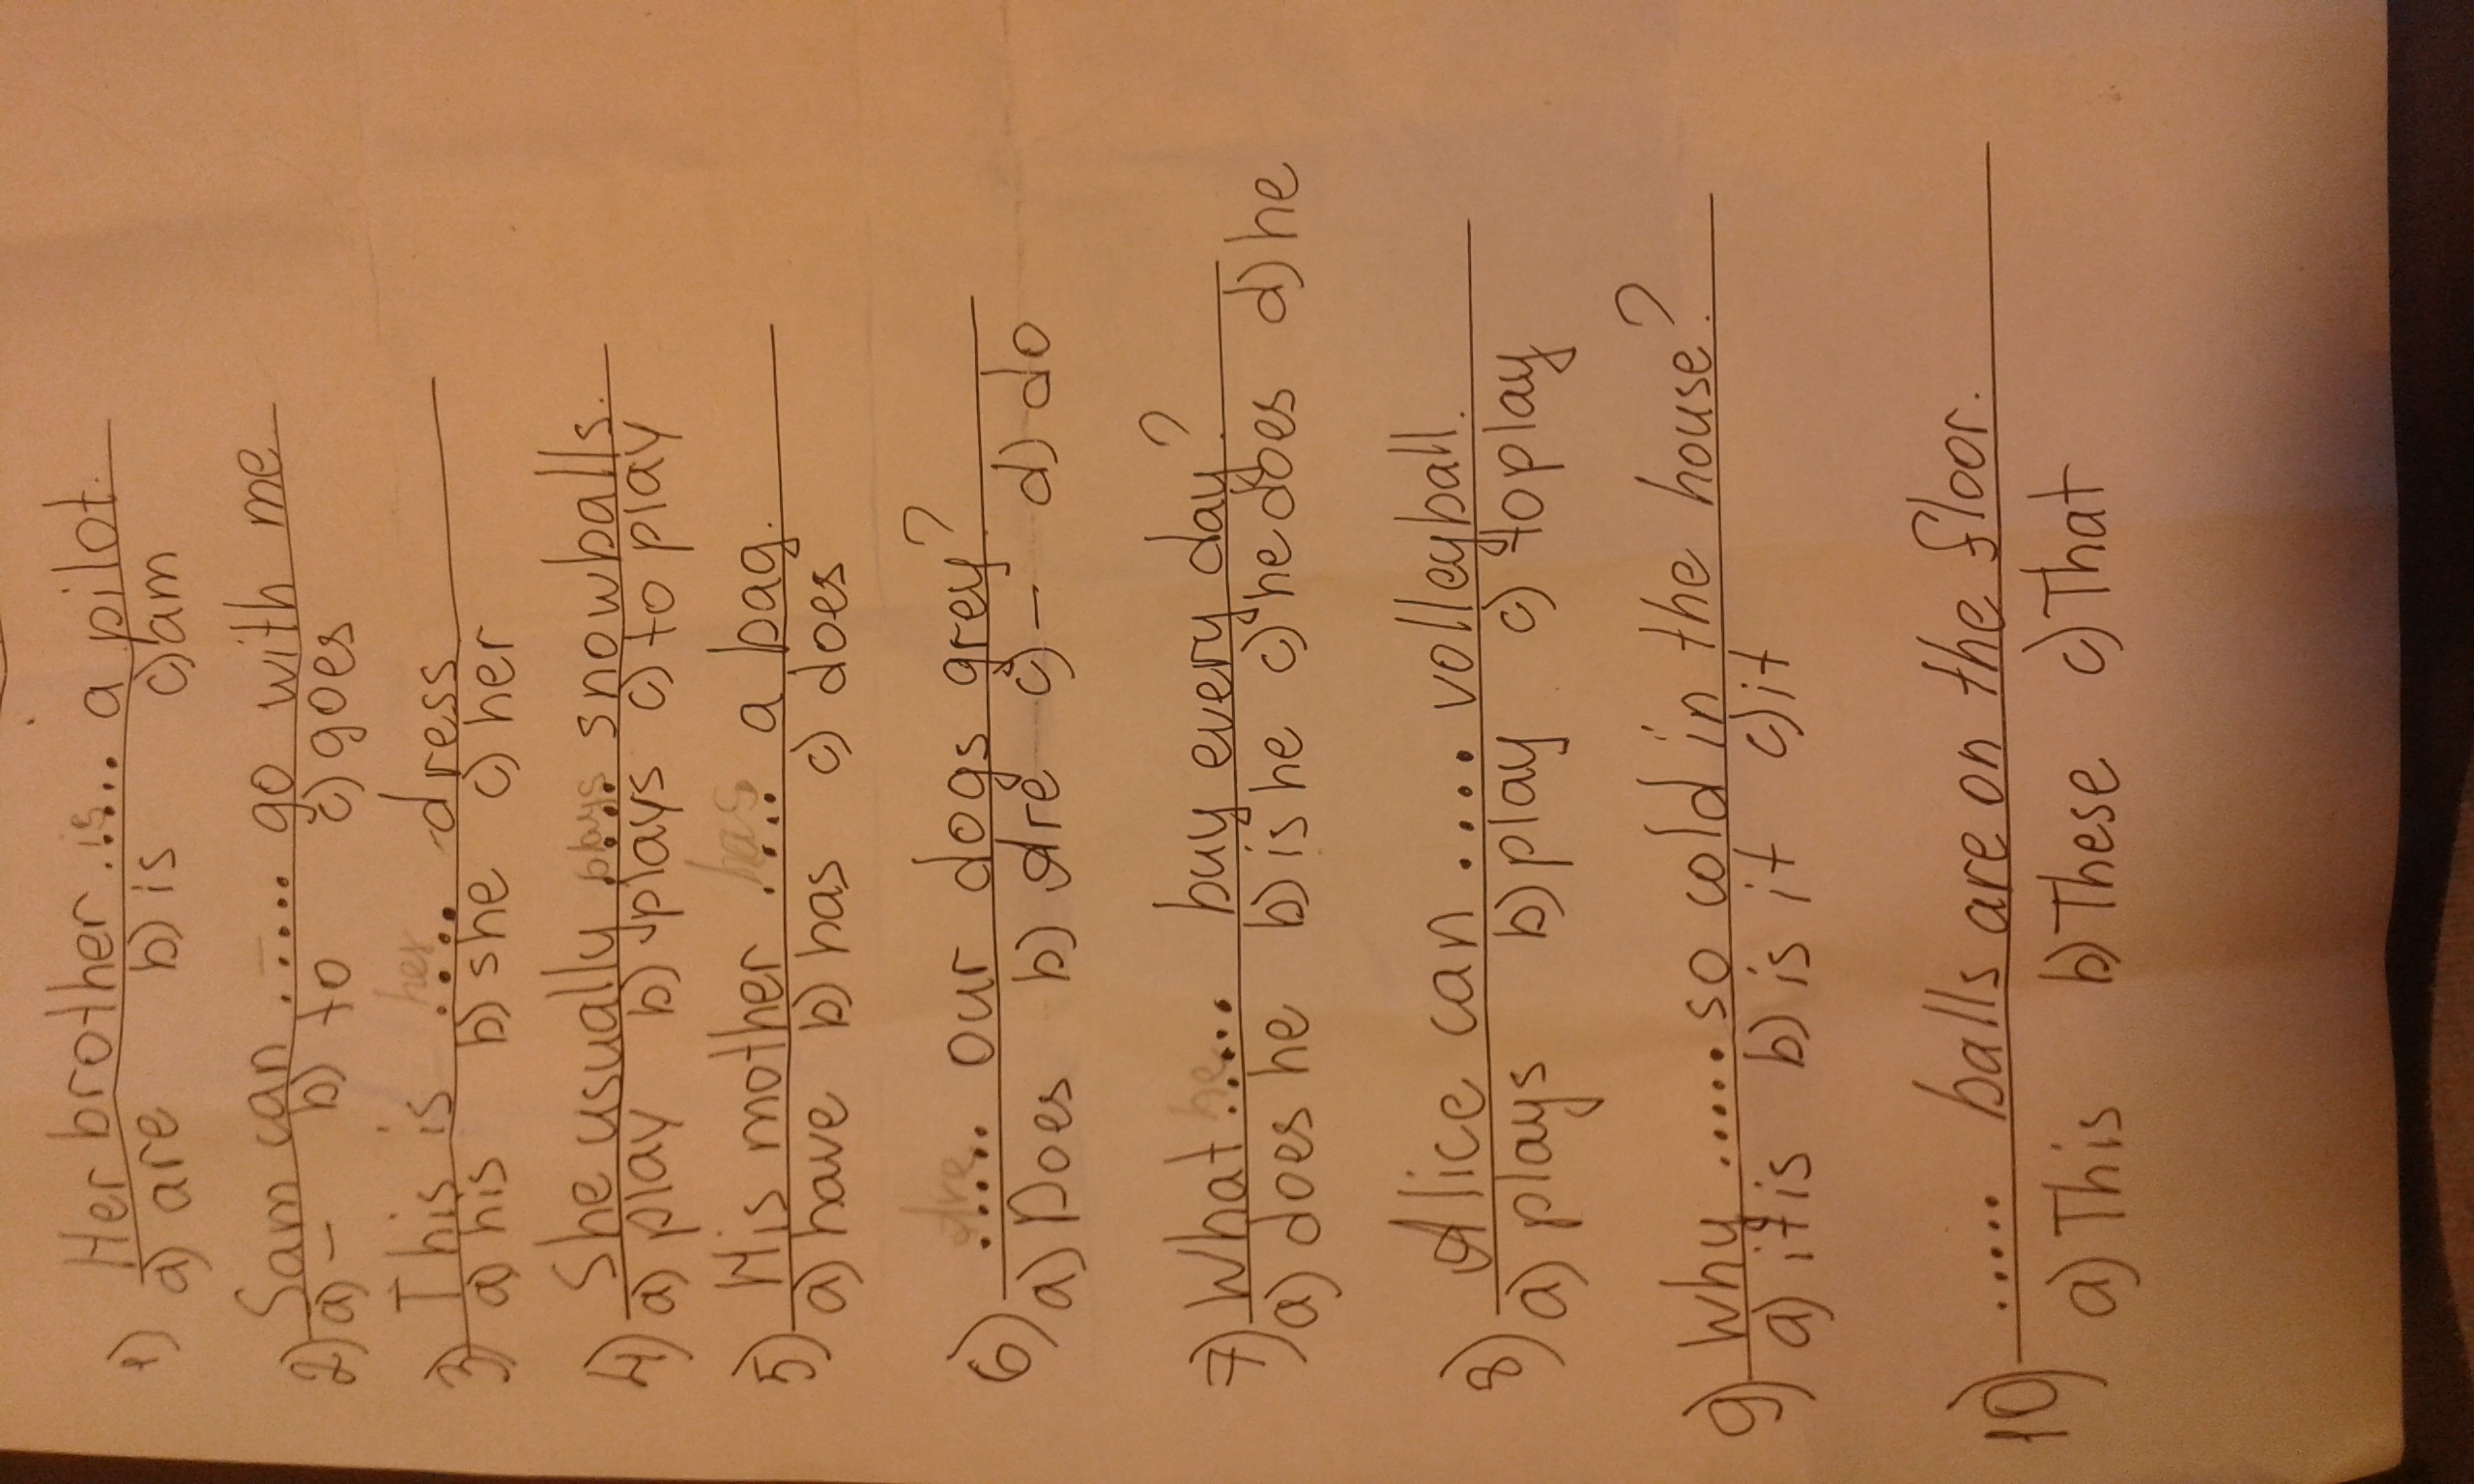 1) Her brother .is... a pilot.
a) are b) is c) am
2) Sam can ..–... go with me
a) – b) to c) goes
3) This is her ..... dress
a) his b) she c) her
4) She usually plays ..... snowballs.
a) play b) plays c) to play
5) His mother has ..... a bag.
a) have b) has c) does
6) Are ..... our dogs grey?
a) Does b) Are c) – d) do
7) What he ..... buy every day?
a) does he b) is he c) he does d) he
8) Alice can ..... volleyball.
a) plays b) play c) to play
9) Why ...... so cold in the house?
a) it is b) is it c) it
10) ..... balls are on the floor.
a) This b) These c) That